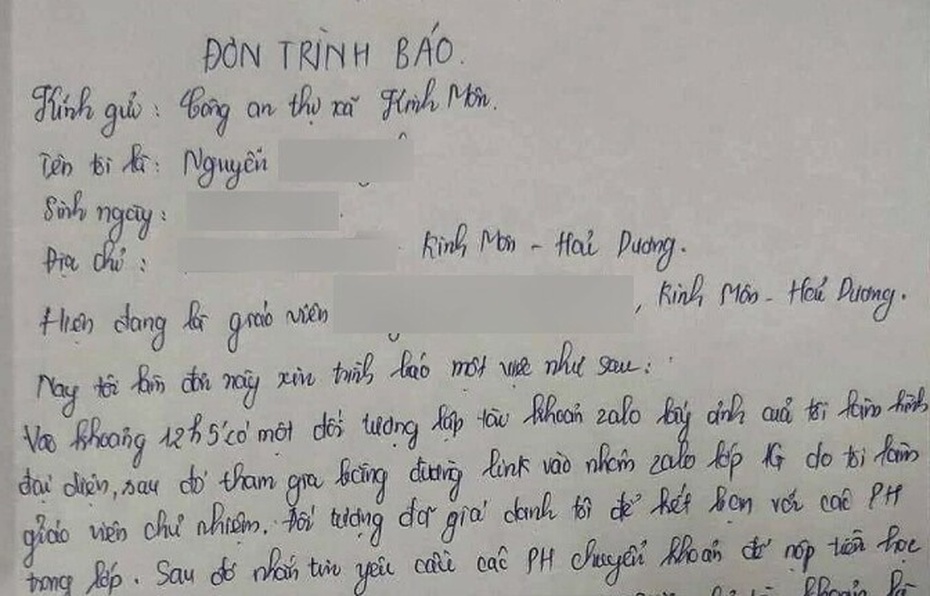 ĐƠN TRÌNH BÁO.
Kính gửi: Công an thị xã Kinh Môn.
Tên tôi là: Nguyễn
Sinh ngày:
Địa chỉ: Kinh Môn - Hải Dương.
Hiện đang là giáo viên , Kinh Môn - Hải Dương.
Nay tôi làm đơn này xin trình báo một việc như sau:
Vào khoảng 12h5' có một đối tượng lập tàu khoản zalo lấy ảnh cuả tôi làm hình
đại diện, sau đó tham gia bằng đường link vào nhóm zalo lớp 1G do tôi làm
giáo viên chủ nhiệm. Đối tượng đã giả danh tôi để kết bạn với các PH
trong lớp. Sau đó nhắn tin yêu cầu các PH chuyển khoản để nộp tiền học